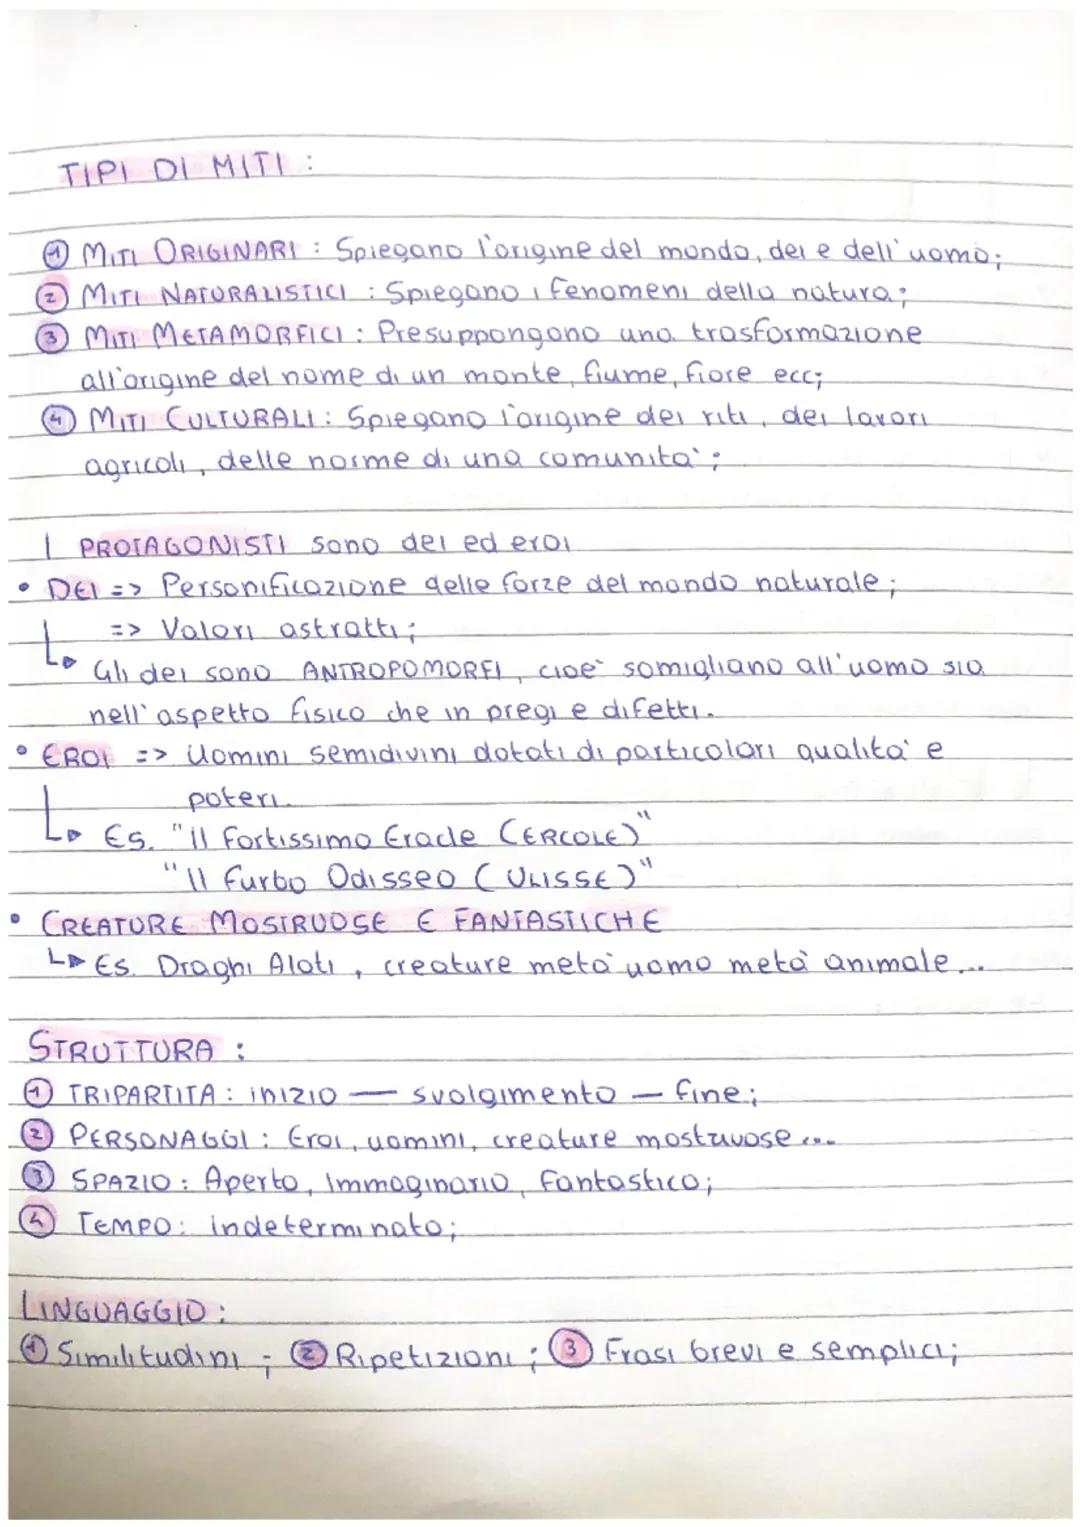 TIPI DI MITI :
① MITI ORIGINARI : Spiegano l'origine del mondo, dei e dell'uomo;
② MITI NATURALISTICI : Spiegano i fenomeni della natura;
③ MITI METAMORFICI : Presuppongono una trasformazione
all'origine del nome di un monte, fiume, fiore ecc;
④ MITI CULTURALI : Spiegano l'origine dei riti, dei lavori
agricoli, delle norme di una comunità;
I PROTAGONISTI sono dei ed eroi
• DEI => Personificazione delle forze del mondo naturale;
=> Valori astratti;
↳ Gli dei sono ANTROPOMORFI, cioè somigliano all'uomo sia
nell'aspetto fisico che in pregi e difetti.
• EROI => Uomini semidivini dotati di particolari qualità e
poteri.
↳ Es. "Il fortissimo Eracle (ERCOLE)"
"Il furbo Odisseo (ULISSE)"
• CREATURE MOSTRUOSE E FANTASTICHE
↳ Es. Draghi Alati, creature metà uomo metà animale...
STRUTTURA :
① TRIPARTITA : inizio — svolgimento — fine;
② PERSONAGGI : Eroi, uomini, creature mostruose...
③ SPAZIO : Aperto, Immaginario, fantastico;
④ TEMPO: indeterminato;
LINGUAGGIO :
① Similitudini ; ② Ripetizioni ; ③ Frasi brevi e semplici;